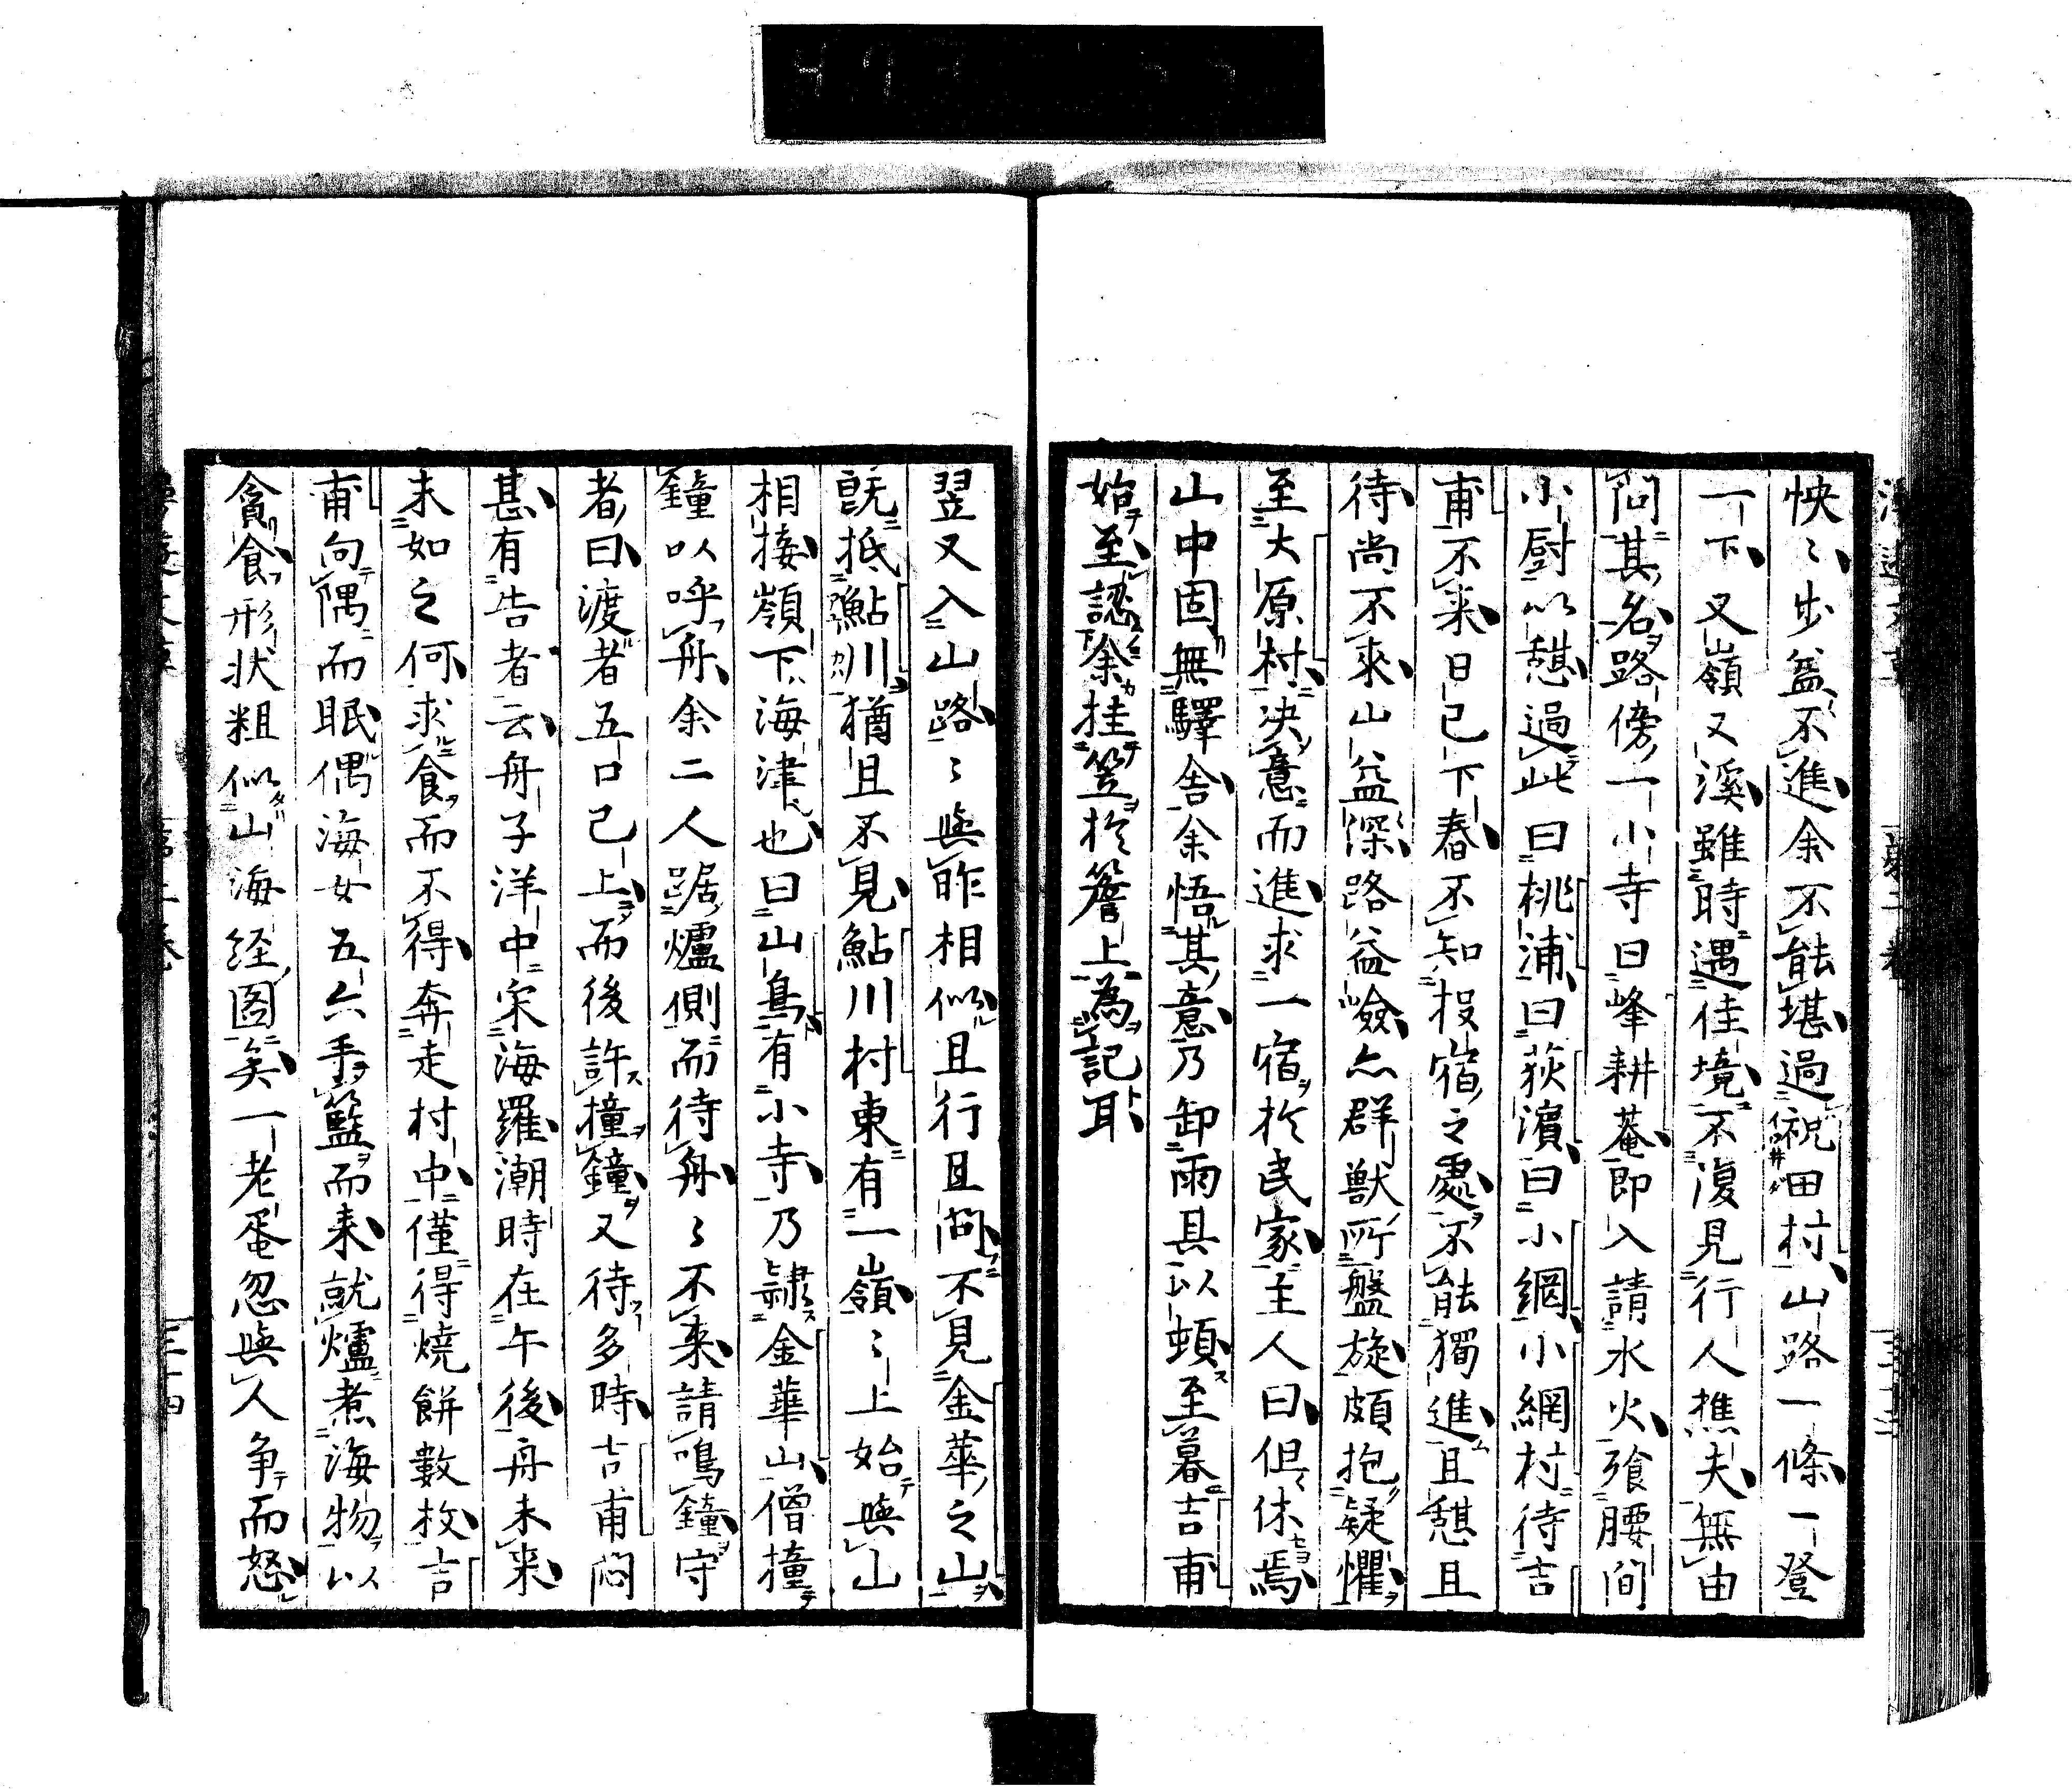 怏〻步益不進余不能堪過祝田村山路一條一登
一下又嶺又溪雖時遇佳境不復見行人樵夫無由
問其名路傍一小寺曰峰耕菴即入請水火飡腰間
小厨以憩過此曰桃浦曰荻濵曰小網小網村待吉
甫不来日已下舂不知投宿之處不能獨進且憩且
待尚不來山益深路益嶮亦群獣所盤旋頗抱疑懼
至大原村决意而進求一宿於民家主人曰但休焉
山中固無驛舎余悟其意乃卸雨具以頓至暮吉甫
始至認余挂笠於簷上為記耳
翌又入山路〻與昨相似且行且問不見金華之山
既抵鮎川猶且不見鮎川村東有一嶺〻上始與山
相接嶺下海津也曰山鳥有小寺乃隷金華山僧撞
鐘以呼舟余二人踞爐側而待舟〻不来請鳴鐘守
者曰渡者五口已上而後許撞鐘又待多時吉甫悶
甚有告者云舟子洋中宋海羅潮時在午後舟未来
未如之何求食而不得奔走村中僅得焼餅數枚吉
甫向隅而眠偶海女五六手籃而来就爐煮海物以
貪食形状粗似山海经图矣一老蜑忽與人争而怒